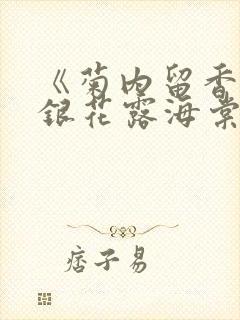 《菊内留香
银花露海棠
痞子易